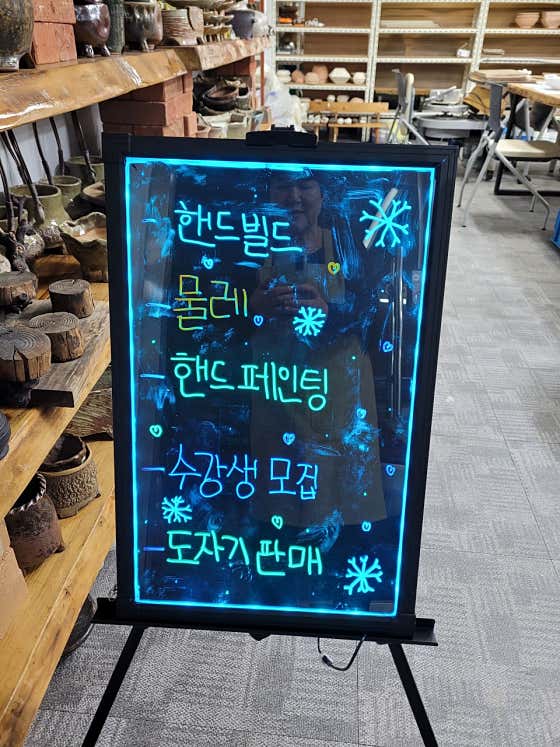 - 핸드빌드
- 물레
- 핸드페인팅
- 수강생 모집
- 도자기 판매